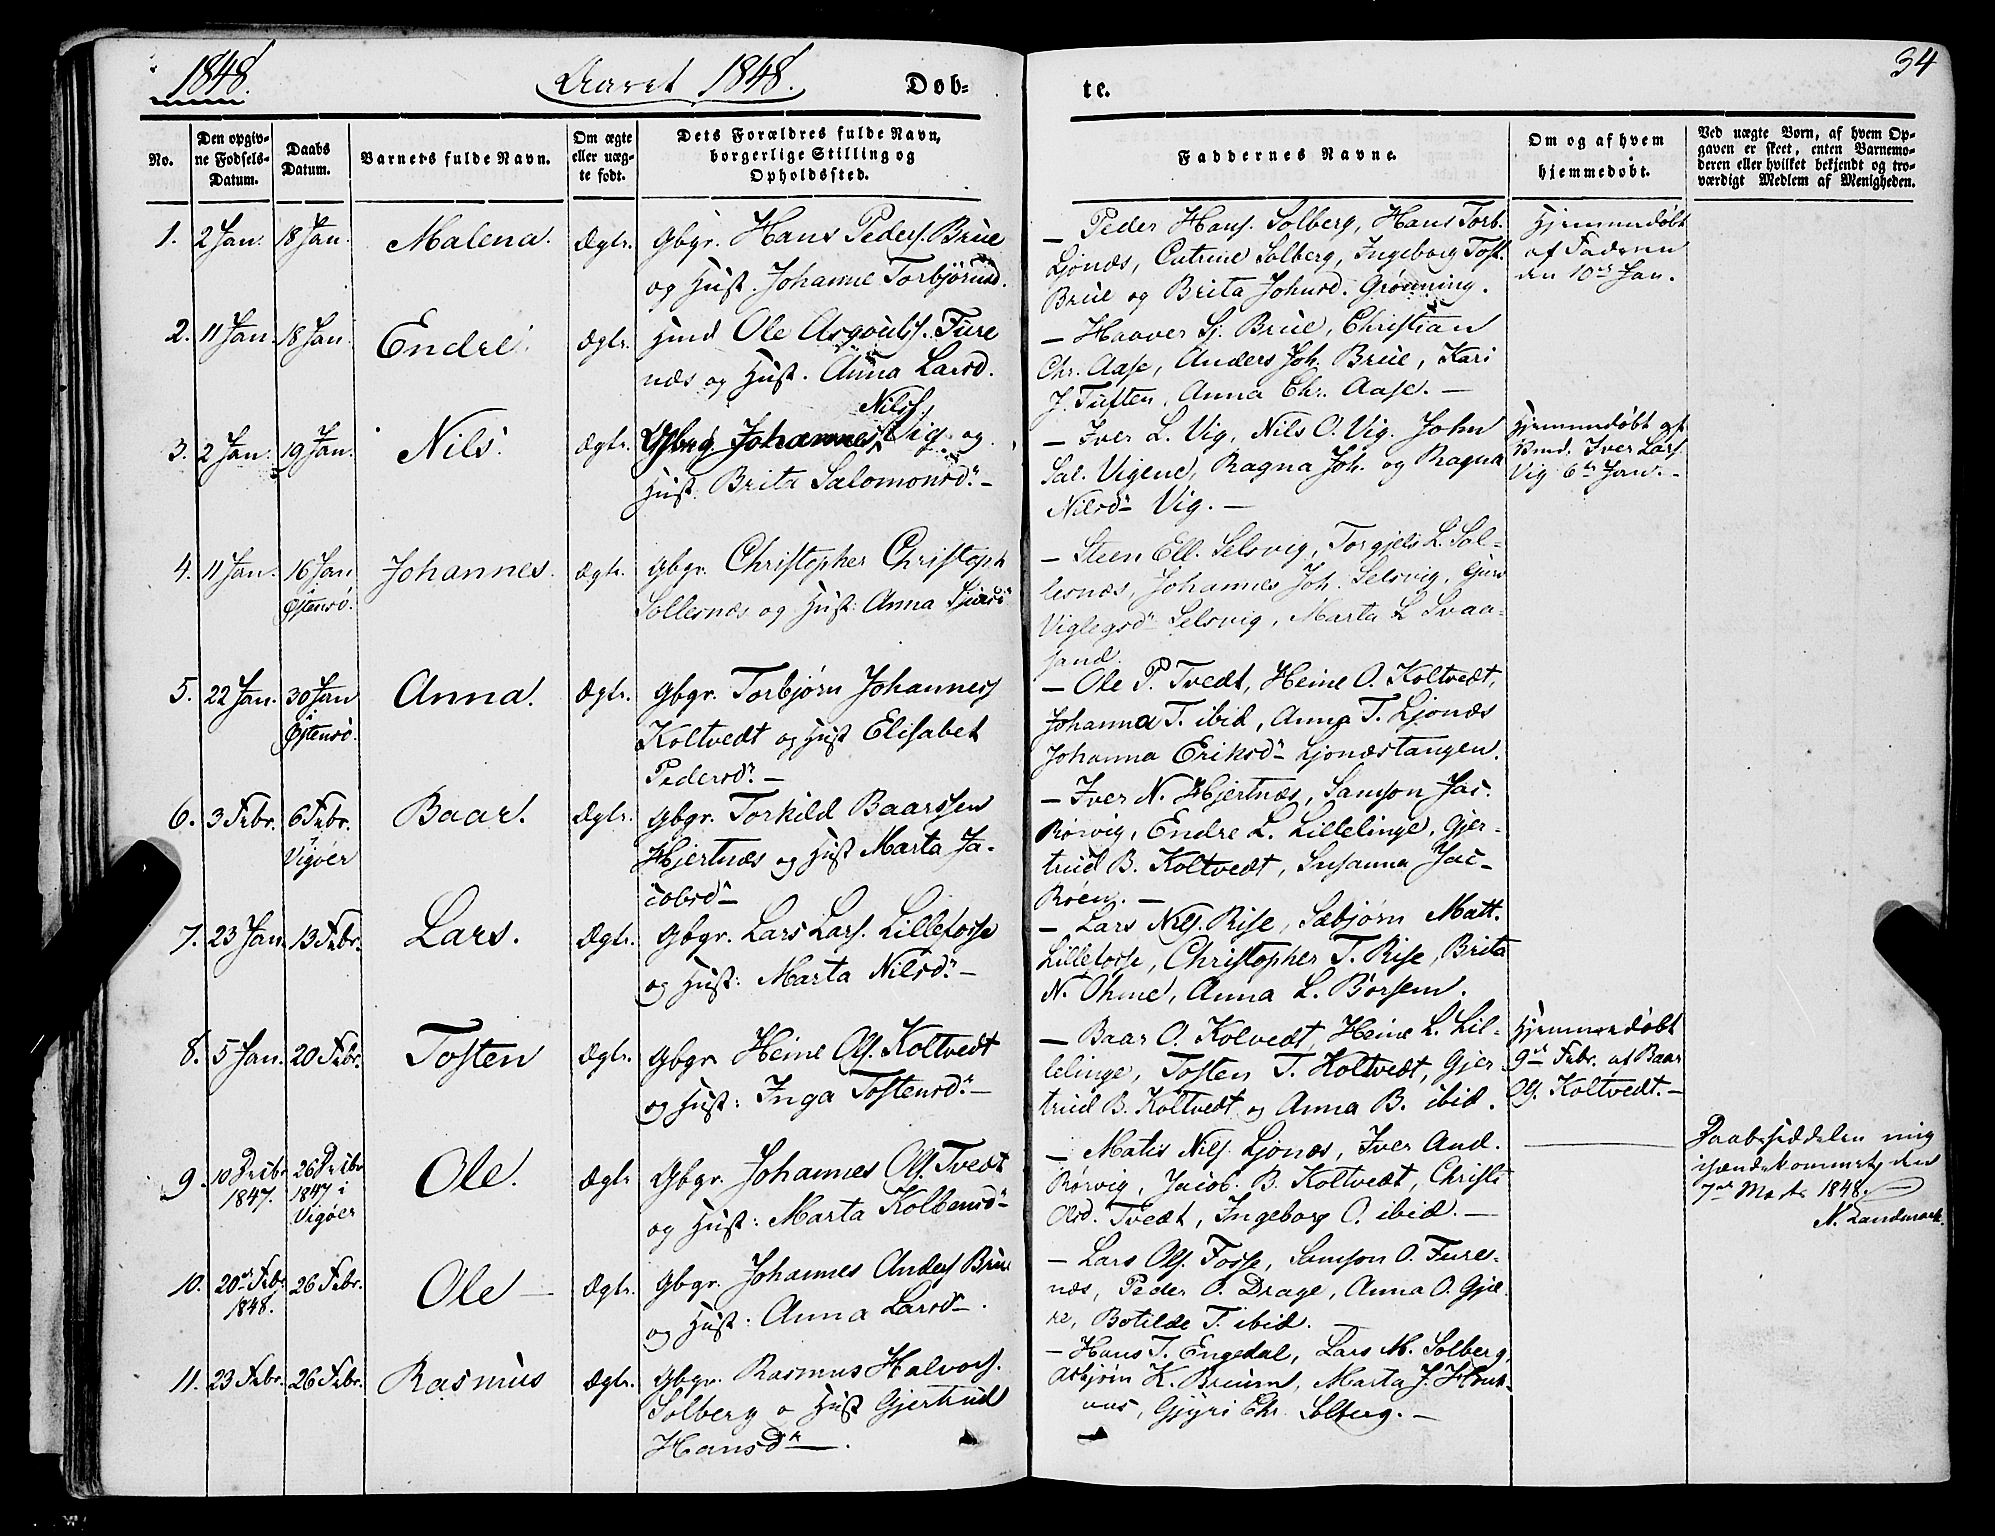 1848.
Aaret 1848.
Døb-
te.
34
No.
Den opgiv-
ne Fødsels-
Datum.
Daabs
Datum.
Barnets fulde Navn.
Om ægte
eller uæg-
te født.
Dets Forældres fulde Navn,
borgerlige Stilling og
Opholdssted.
Faddernes Navne.
Om og af hvem
hjemmedøbt.
Ved uægte Børn, af hvem Op-
gaven er skeet, enten Barnemo-
deren eller hvilket bekjendt og tro-
værdigt Medlem af Menigheden.
1. 2 Jan. 18 Jan. Malena. Ægte. Gbgr. Hans Peders. Brüe
og Hust. Johanne Torbjörnsd.
— Peder Hans. Solberg, Hans Torb.
Ljonæs, Catrine Solberg, Ingeborg Tost.
Brüe og Brita Johnsd. Grønning.
Hjemmedøbt
af Faderen
den 10de Jan.
2. 11 Jan. 18 Jan. Endre. Ægte. Hmd Ole Asgouts. Fure
næs og Hust. Anna Larsd.
— Haaver Sj. Brüe, Christian
Chr. Aase, Anders Joh. Brüe, Kari
J. Tuften, Anna Chr. Aase. —
3. 2 Jan. 19 Jan. Nils. Ægte. Gbrg. Johannes Nilss. Vig. og
Hust. Brita Salomonsdr —
— Iver L. Vig, Nils O. Vig. John
Sal. Vigene, Ragna Joh. og Ragna
Nilsdr Vig. —
Hjemmedøbt af
Iver Lars.
Vig 6te Jan. —
4. 11 Jan. 16 Jan Østensö. Johannes. Ægte. Gbgr. Christopher Christoph
Sollesnæs og Hust: Anna
— Steen Ell. Selsvig, Torgjels L. Sol-
lesnæs, Johannes Joh. Selsvig,
Viglegsdr Selsvig, Marta L Svaa-
sand.
5. 22 Jan. 30 Jan i Østensö. Anna. Ægte. Gbgr. Torbjørn Johanness
Koltvedt og Hust Elisabet
Pedersdr —
— Ole P. Tvedt, Heine O. Koltvedt,
Johanna T. ibid, Anna T. Ljonæs
Johanna Eriksdr Ljonæstangen.
6. 3 Febr. 6 Febr. i Vigøer Baar. Ægte. Gbgr. Torkild Baarssen
Hjertnæs og Hust Marta Ja-
cobsdr
— Iver N. Hjertnæs, Samson Jac.
Rørvig, Endre L. Lillelinge, Gjer-
trud B. Koltvedt, Susanna Jac-
Røen. —
7. 23 Jan. 13 Febr. Lars. Ægte. Gbgr. Lars Lars. Lillefosse
og Hust: Marta Nilsdr —
— Lars Nils. Rise, Sæbjørn Matt.
Lillefosse, Christopher T. Rise, Brita
N. Ohme, Anna L. Børsem.
8. 5 Jan. 20 Febr. Tosten Ægte. Gbgr. Heine Ols. Koltvedt
og Hust: Inga Tostensdr —
— Baar O. Kolvedt, Heine L. Lil-
lelinge, Tosten T. Koltvedt, Gjer
trud B. Koltvedt og Anna B. ibid.
Hjemmedøbt
9de Febr. af Baar
Ols. Koltvedt. —
9. 10 Decbr 1847. 26 Decbr 1847 i Vigøer Ole. Ægte Gbgr. Johannes Ols. Tvedt
og Hust: Marta Kolbensdr
— Matis Nils. Ljonæs, Iver And.
Rørvig, Jacob. B. Koltvedt, Christi
Olsd. Tvedt, Ingeborg O. ibid. —
Daabsseddelen mig
ihændekommet den
7de Marts 1848.
N. Landmark.
10. 20de Febr 1848. 26 Febr. Ole — Ægte. Gbgr. Johannes Anders Brüe
og Hust: Anna Larsdr.
— Lars Ols. Fosse, Samson O. Fures-
næs, Peder O. Drage, Anna O. Gjæ-
re, Botilde T. ibid. —
11. 23 Febr. 26 Febr. Rasmus Ægte. Gbgr. Rasmus Halvors.
Solberg o Hust Gjertrud
Hansdr —.
— Hans T. Engedal, Lars M. Solberg,
Asbjørn K. Bruum, Marta J.
Gjyri Chr. Solberg. —